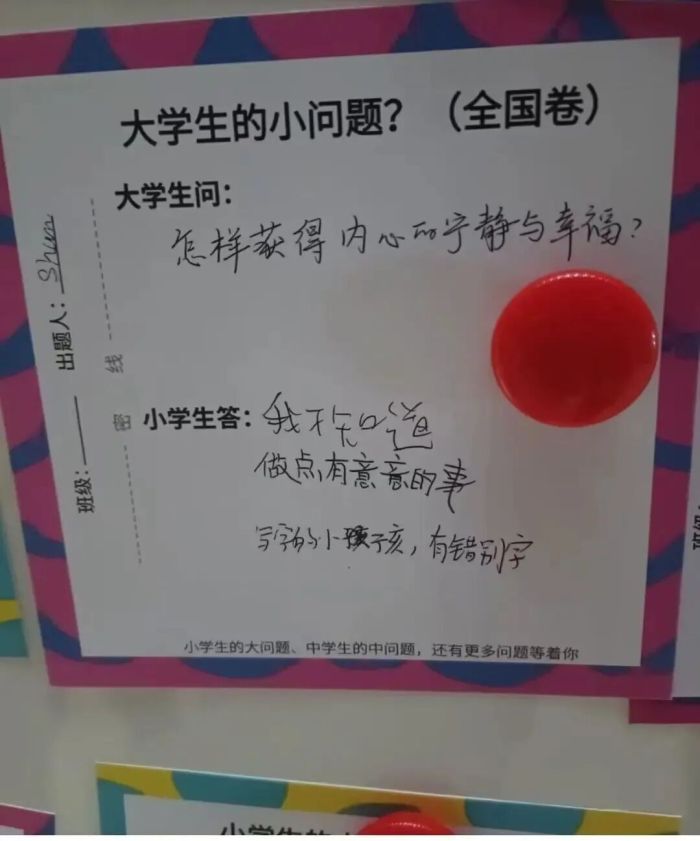 大学生的小问题？（全国卷）
大学生问：
怎样获得内心的宁静与幸福？
出题人：Shun
班级：
密 线
小学生答：我不知道
做点有意意的事
写字的小孩子孩，有错别字
小学生的大问题、中学生的中问题，还有更多问题等着你